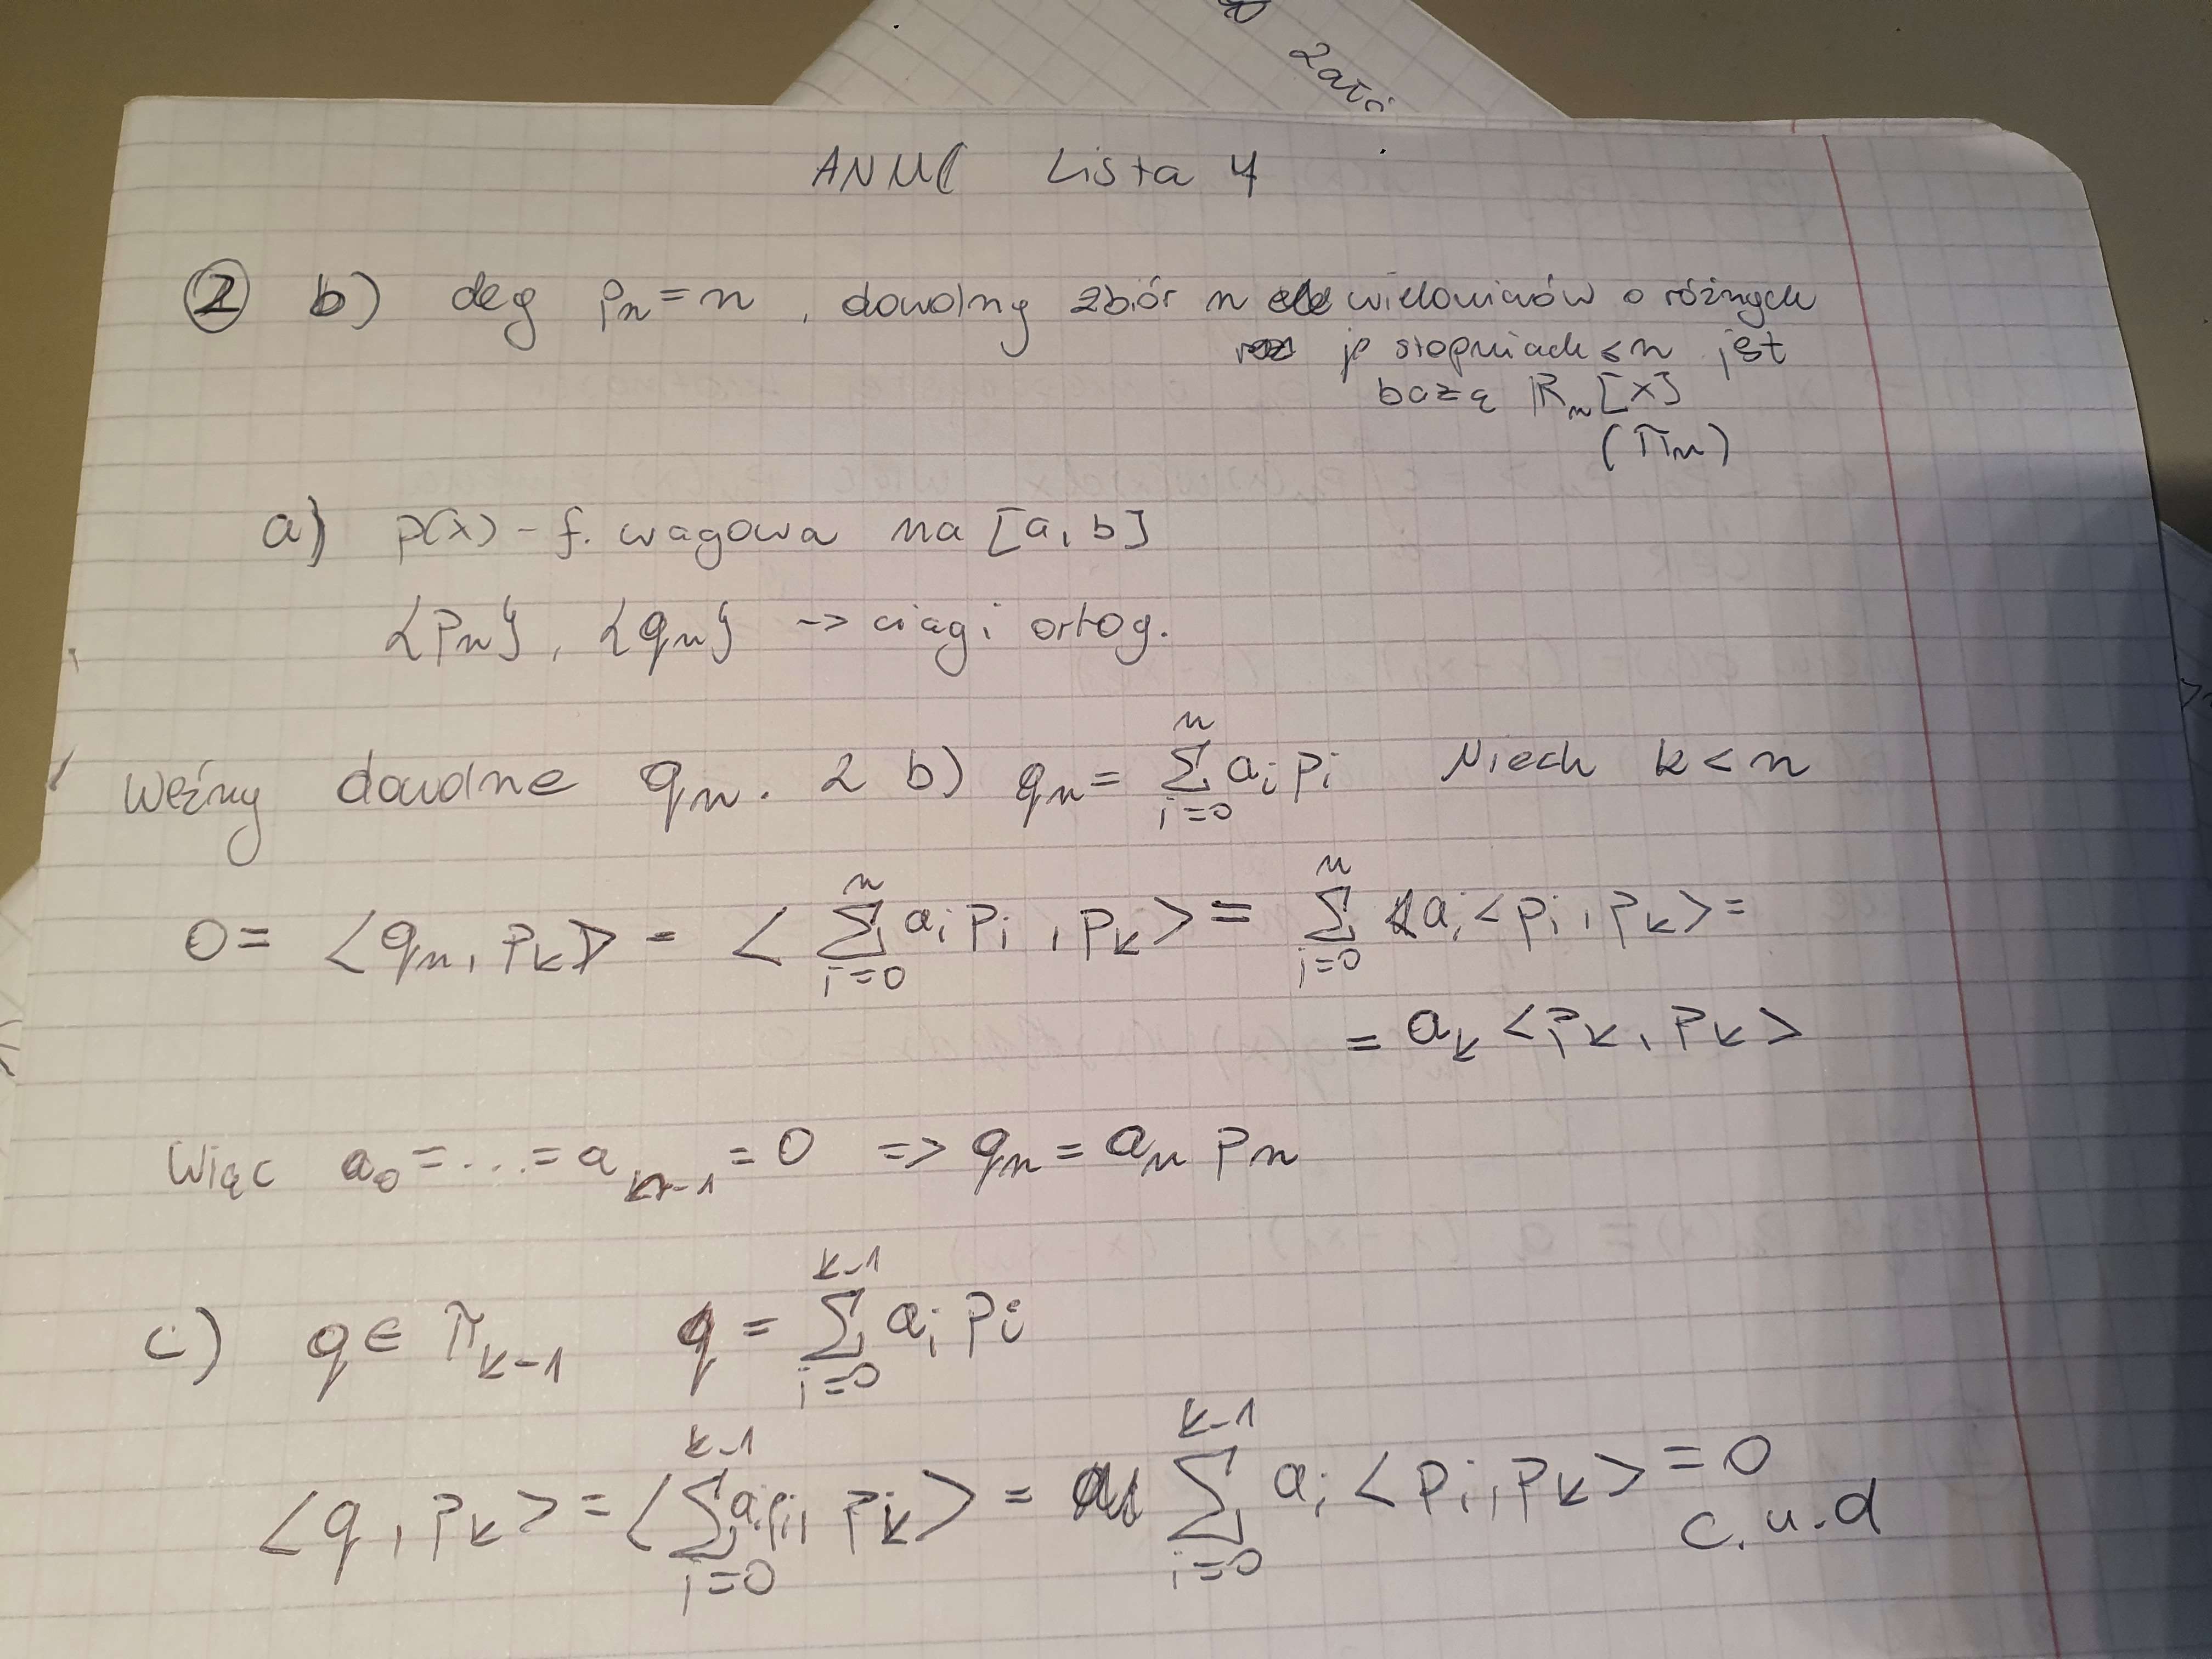 Zał
ANM( Lista 4
② b) deg pₙ = n , dowolny zbiór n wielomianów o różnych
stopniach ≤ n jest
bazą ℝₙ[x]
(Πₙ)
a) p(x) - f. wagowa na [a, b]
{pₙ}, {qₙ} -> ciągi ortog.
Weźmy dowolne qₙ. Z b) qₙ = ∑_{i=0}^{n} aᵢ pᵢ Niech k < n
0 = <qₙ, pₖ> = < ∑_{i=0}^{n} aᵢ pᵢ , pₖ > = ∑_{i=0}^{n} aᵢ <pᵢ, pₖ> =
= aₖ <pₖ, pₖ>
Więc a₀ = ... = a_{n-1} = 0 => qₙ = aₙ pₙ
c) q ∈ Π_{k-1} q = ∑_{i=0}^{k-1} aᵢ pᵢ
<q, pₖ> = < ∑_{i=0}^{k-1} aᵢ pᵢ, pₖ > = ∑_{i=0}^{k-1} aᵢ <pᵢ, pₖ> = 0
c.u.d